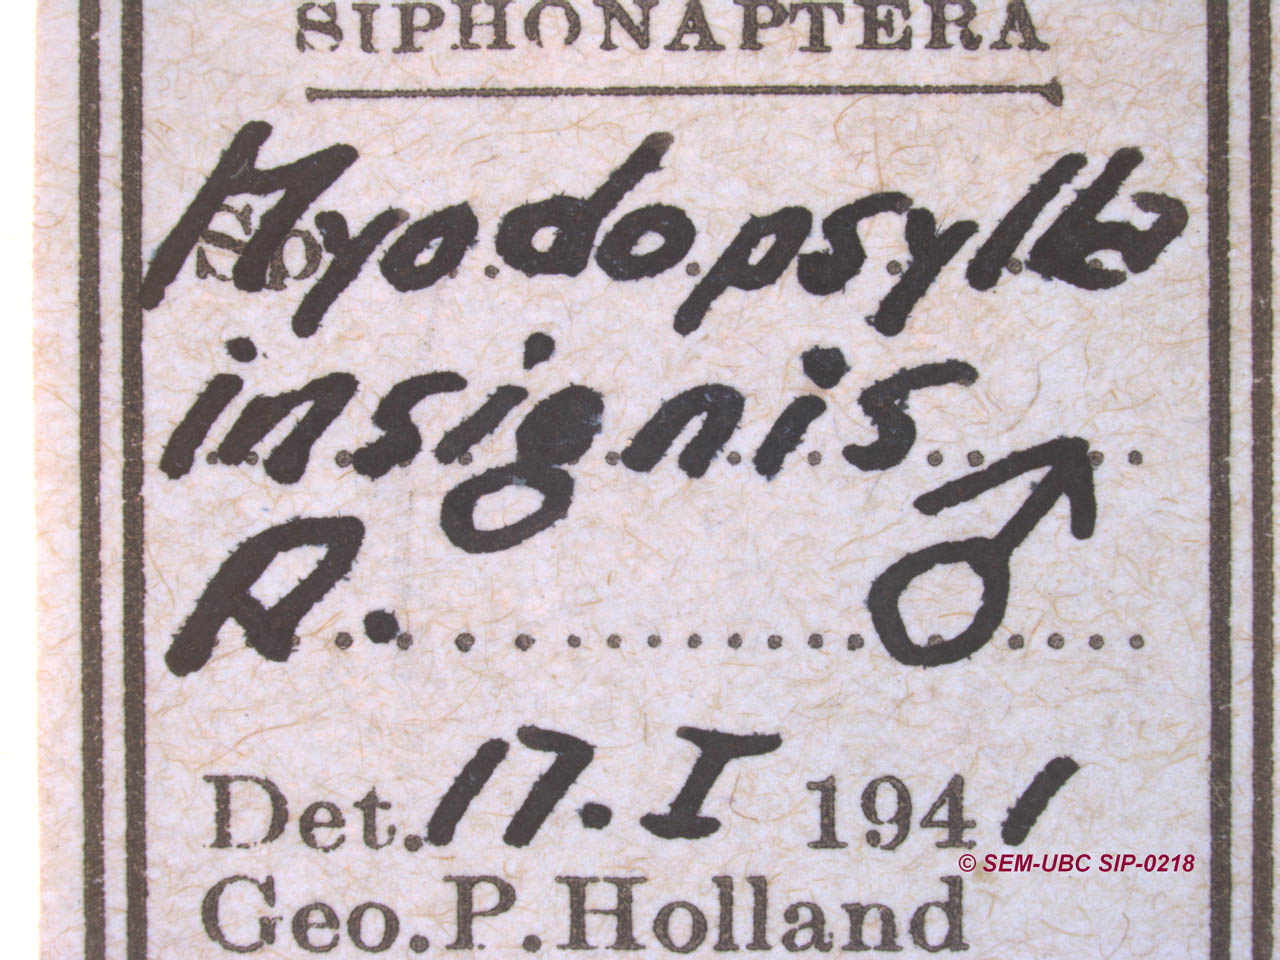 SIPHONAPTERA
Sp. Myodopsylla
insignis
R. ♂
Det. 17. I 1941
© SEM-UBC SIP-0218
Geo. P. Holland